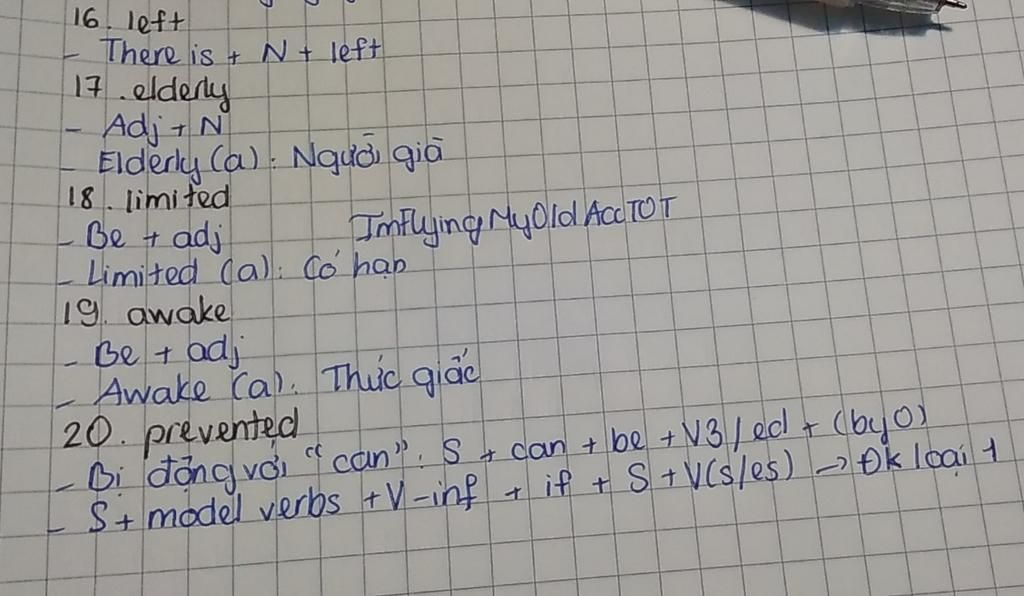 16. left
- There is + N + left
17. elderly
- Adj + N
- Elderly (a): Người già
18. limited
- Be + adj
ImFlyingMyOldAccTOT
- Limited (a): Có hạn
19. awake
- Be + adj
- Awake (a): Thức giấc
20. prevented
- Bị động với "can": S + can + be + V3/ed + (by O)
- S + model verbs + V-inf + if + S + V(s/es) → Đk loại 1